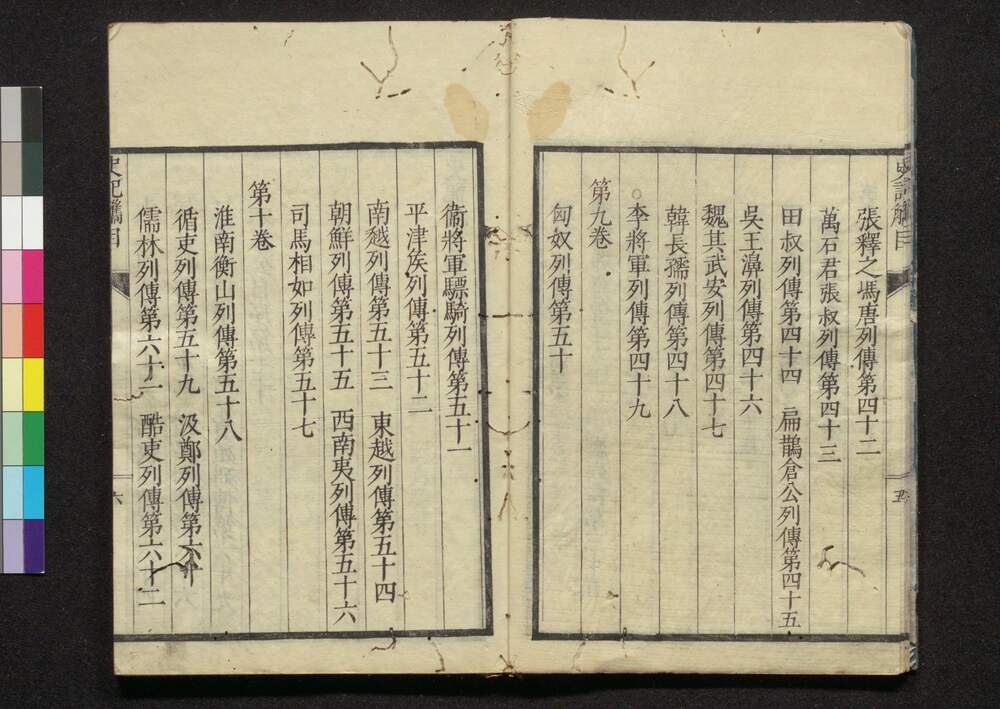 張釋之馮唐列傳第四十二
萬石君張叔列傳第四十三
田叔列傳第四十四　扁鵲倉公列傳第四十五
吳王濞列傳第四十六
魏其武安列傳第四十七
韓長孺列傳第四十八
○李將軍列傳第四十九
第九卷
匈奴列傳第五十
衞將軍驃騎列傳第五十一
平津侯列傳第五十二
南越列傳第五十三　東越列傳第五十四
朝鮮列傳第五十五　西南夷列傳第五十六
司馬相如列傳第五十七
第十卷
淮南衡山列傳第五十八
循吏列傳第五十九　汲鄭列傳第六十
儒林列傳第六十一　酷吏列傳第六十二
六